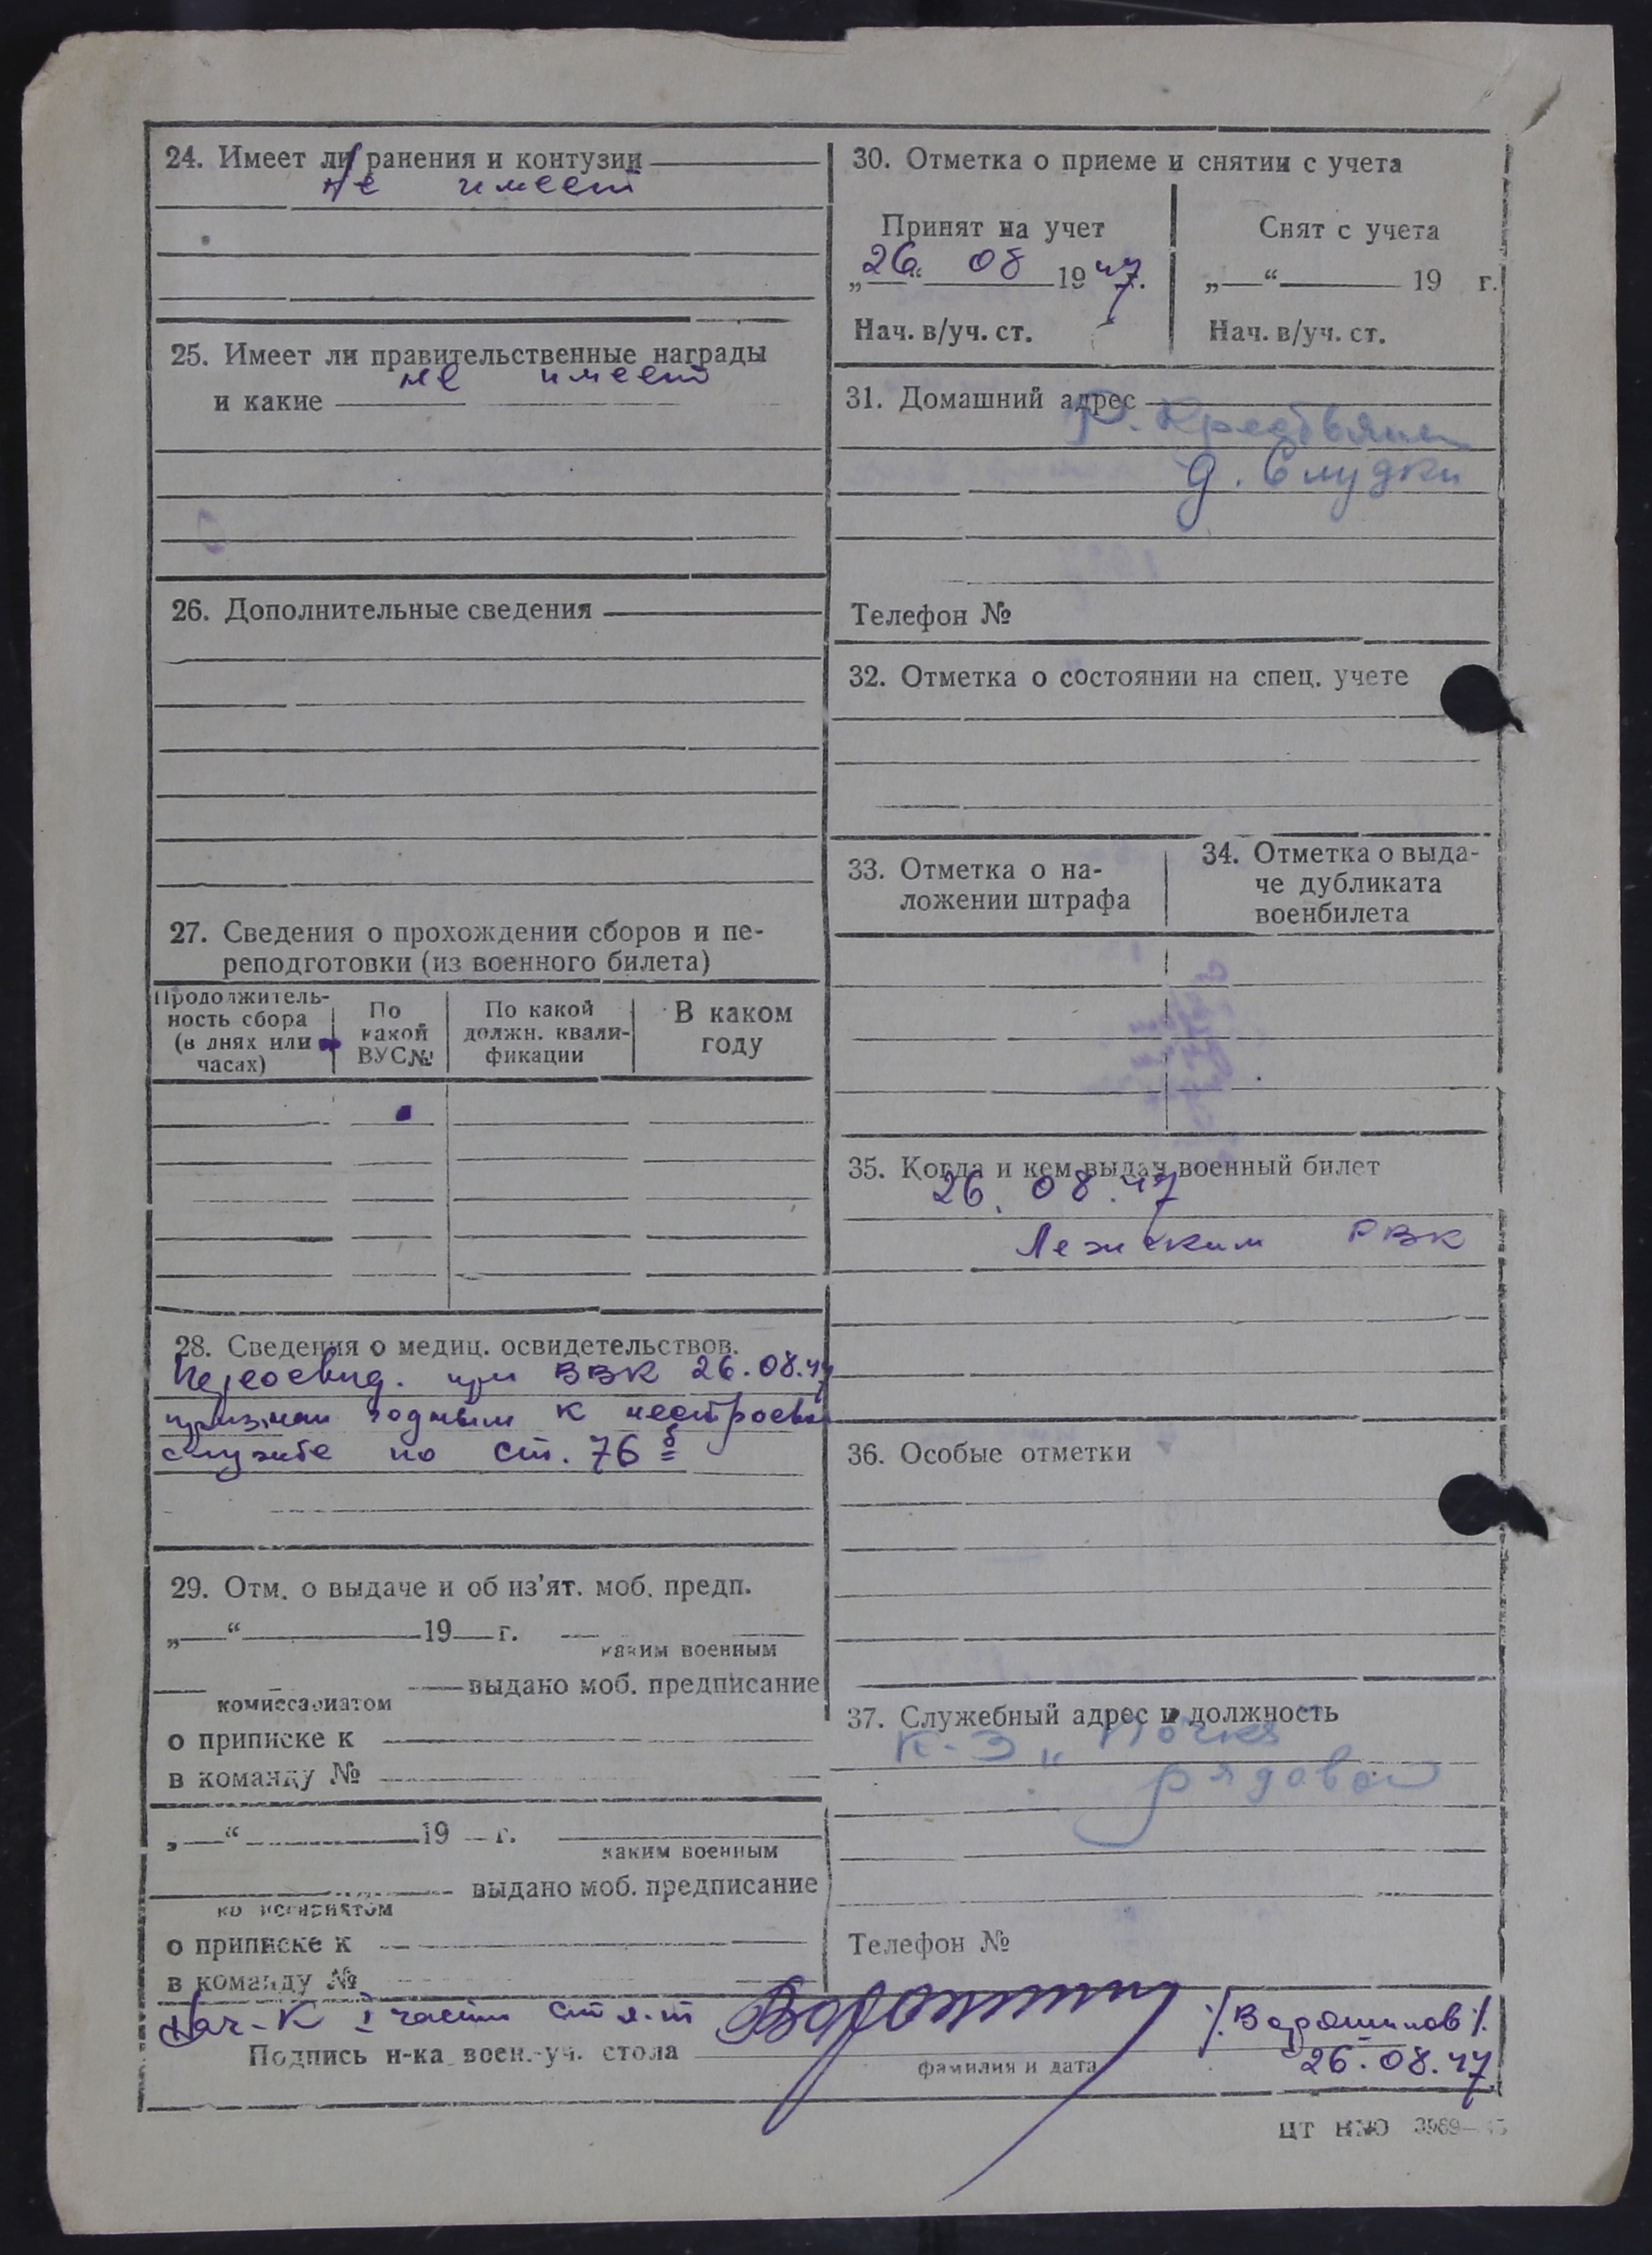 24. Имеет ли ранения и контузии
не имеет
25. Имеет ли правительственные награды
и какие не имеет
26. Дополнительные сведения
27. Сведения о прохождении сборов и пе-
реподготовки (из военного билета)
Продолжитель-
ность сбора
(в днях или
часах)
По
какой
ВУС№
По какой
должн. квали-
фикации
В каком
году
28. Сведения о медиц. освидетельствов.
Переосвид. при ВВК 26.08.47
признан годным к нестроевой
службе по ст. 76 б
29. Отм. о выдаче и об из'ят. моб. предп.
„ “ 19 г.
каким военным
выдано моб. предписание
комиссариатом
о приписке к
в команду №
„ “ 19 г.
каким военным
выдано моб. предписание
комиссариатом
о приписке к
в команду №
30. Отметка о приеме и снятии с учета
Принят на учет
„26“ 08 1947.
Нач. в/уч. ст.
Снят с учета
„ “ 19 г.
Нач. в/уч. ст.
31. Домашний адрес
д. Слудки
Телефон №
32. Отметка о состоянии на спец. учете
33. Отметка о на-
ложении штрафа
34. Отметка о выда-
че дубликата
военбилета
35. Когда и кем выдан военный билет
26. 08. 47
Лежским РВК
36. Особые отметки
37. Служебный адрес и должность
к-з „
рядовой
Телефон №
Нач-к I части ст л-т /Ворошилов/.
Подпись н-ка воен.-уч. стола
фамилия и дата
26.08.47